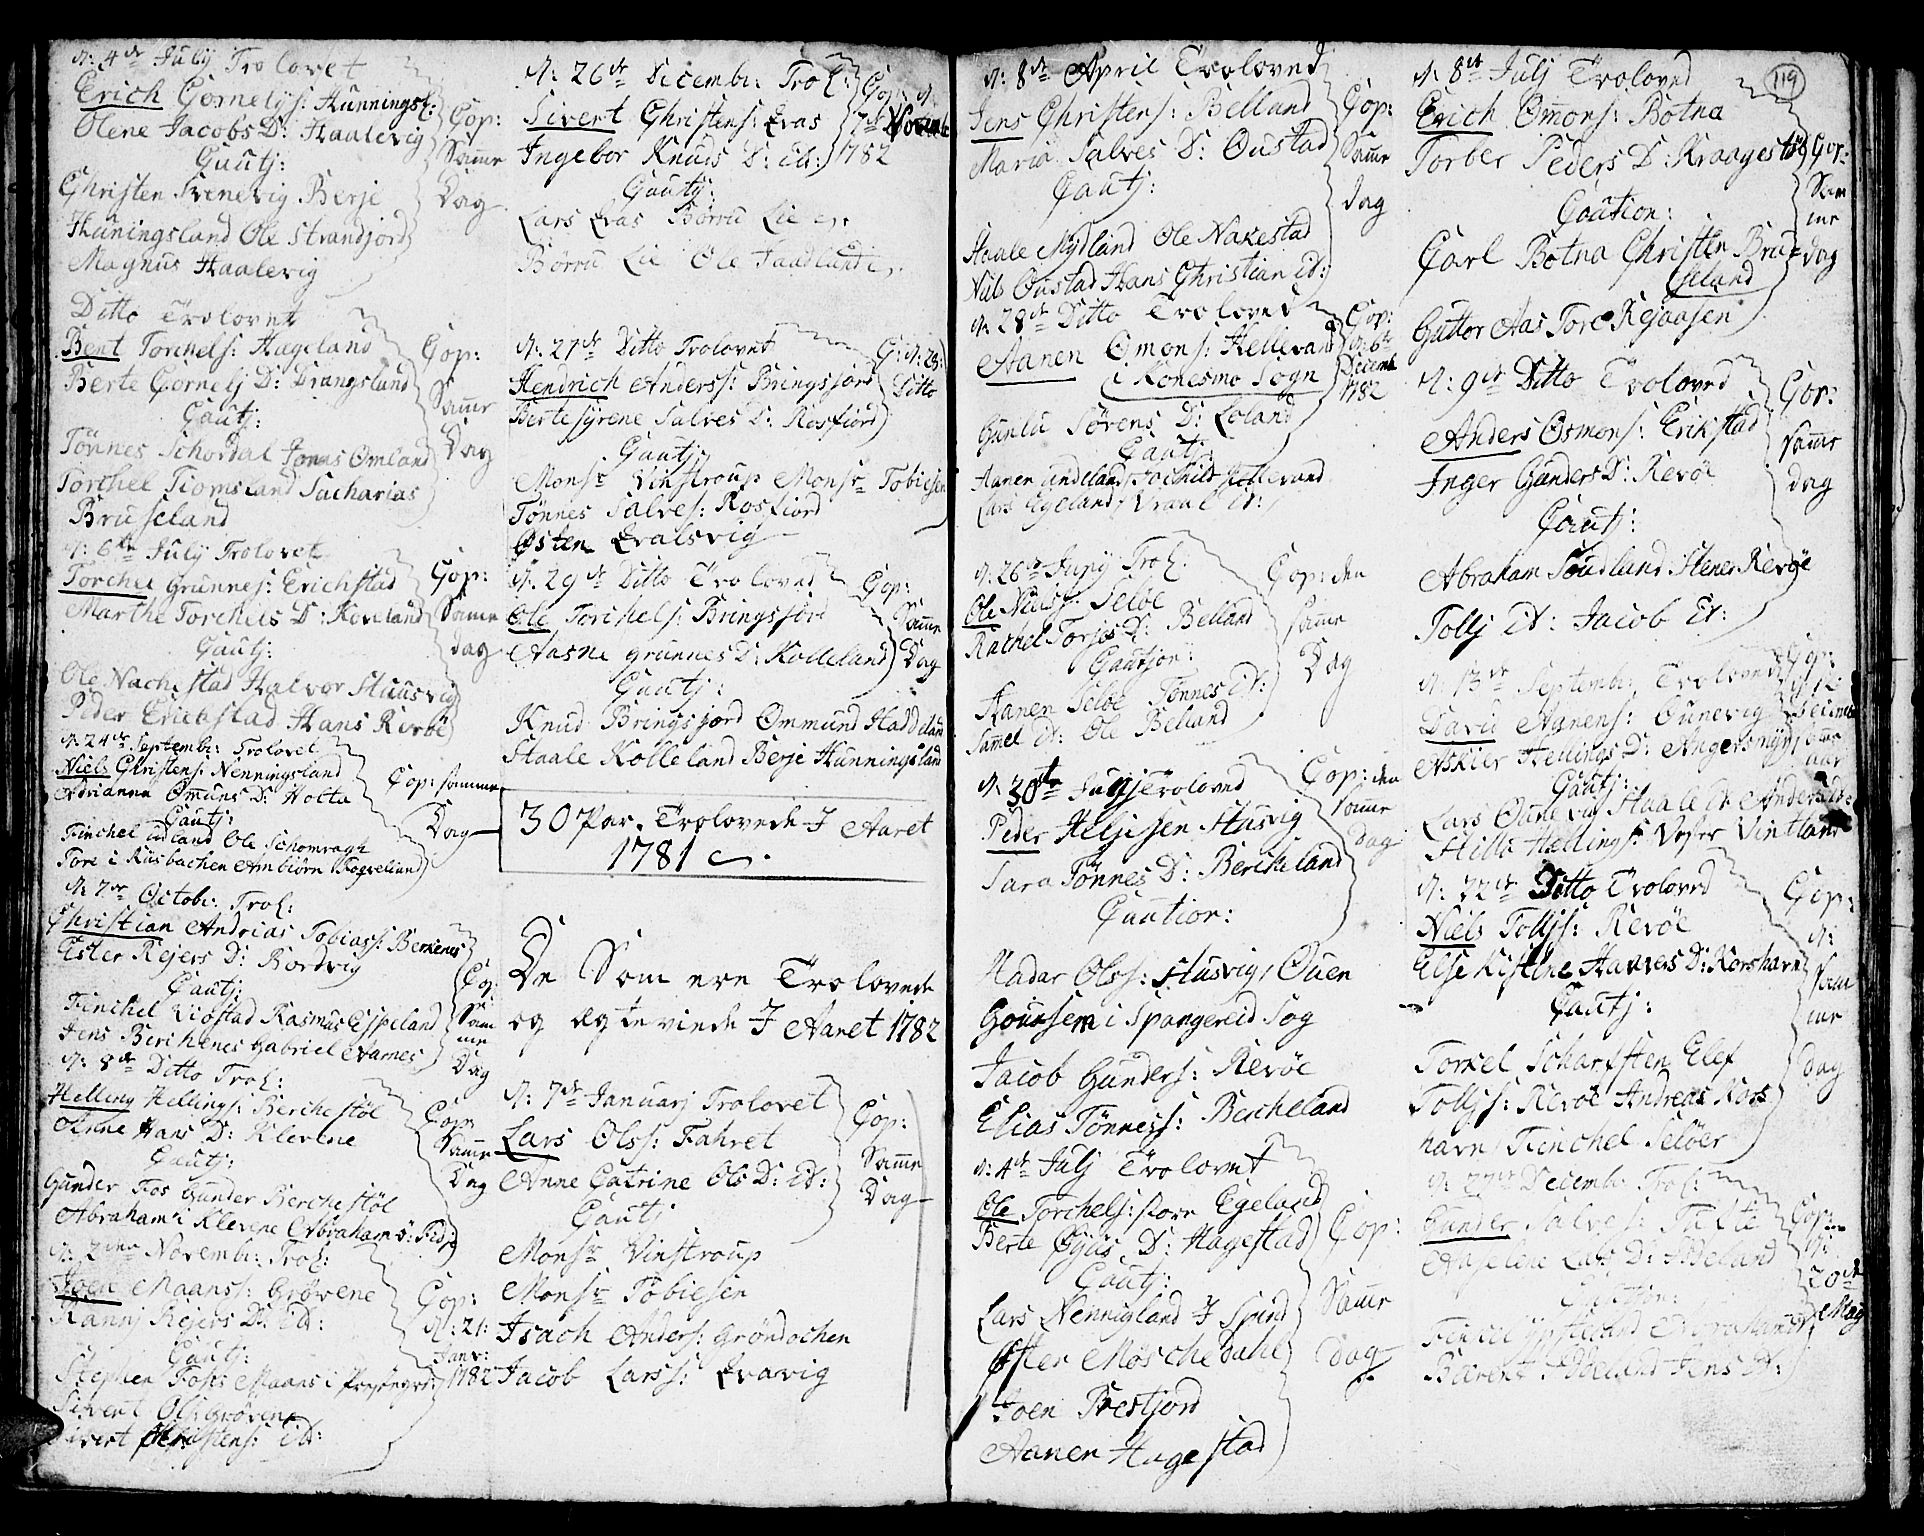 d: 4de July Trolovet
Erich Cornelys: Hunningsl:
Olene Jacobs D: Haalevig
Cautj:
Christen Svenevig Berje
Huningsland Ole Strandjord
Magnus Haalevig
Cop:
Samme
Dag
Ditto Trolovet
Bent Torchels: Hageland
Berte Cornelj D: Drangsland
Cautj:
Tönnes Schordal Jonas Omland
Torchel Tiomsland Sacharias
Bruseland
Cop:
Samme
Dag
d: 6te July Trolovet
Torchel Grunnes: Erichstad
Marthe Torchels D: Koveland
Cautj:
Ole Nachestad Halvor Stuusvig
Peder Erichstad Hans Revöe
Cop:
Samme
dag
d: 24de Septembr: Trolovet
Niels Christens: Nenningsland
Adrianna Omuns D: Holta
Cautj:
Tinchel Ole Schomragh
Tore i Kusbachen Anbiörn
Cop: samme
Dag
d: 7de Octobr: Trol:
Christian Andrias Tobiass: Berkenes
Ester Rejers D: Rordvig
Cautj:
Tinchel Viostad Rasmus Espeland
Jens Berchenes Gabriel Aarnes
Cop:
Sam
me
Dag
d: 8de Ditto Trol:
Helling Hellings: Berchestöl
Anne Hans D: Klevene
Cautj:
Gunder Fos Gunder Berchestöl
Abraham i Klevene Abrahams:
Cop:
Samme
Dag
d: 2den Novembr: Trol:
Joen Maans: Grövene
Rannj Rejers D: id:
Cautj:
Stephen Foss Maans i
Sivert Ols: Grövene
Sivert Christens: id:
Cop:
d: 21:
Janv:
1782
d: 26de Decembr: Trol:
Sivert Christens: Evas
Ingebor Knuds D: id:
Cautj:
Lars Evas Börru Lie
Börru Lie Ole Faadlund
Cop: d:
7de Novemb
1782
d: 27de Ditto Trolovet
Hendrich Anderss: Bringsjord
Berte Syrene Salves D: Rosfiord
Cautj:
Monsr Vinstroup Monsr Tobiesen
Tönnes Salves: Rosfiord
Østen Evalsvig
C: d: 29:
Ditto
d: 29de Ditto Troloved
Ole Torchels: Bringsfiord
Aasne Grunnes D: Kolleland
Cautj:
Knud Bringsjord Ommund Haddeland
Staale Kolleland Berje Hunningsland
Cop:
Samme
Dag
30 Par. Trolovede I Aaret
1781
De Som ere Trolovede
og ægteviede I Aaret 1782
d: 7de Januarj Trolovet
Lars Olss: Fahret
Anne Catrine Ols D: id:
Cautj:
Monsr Vinstroup
Monsr Tobiesen
Isach Anders: Gröndochen
Jacob Larss: Evavig
Cop:
Samme
Dag
d: 8de April Troloved
Jens Christens: Belland
Maria Salves D: Oustad
Cautj:
Staale Mydland Ole Nakestad
Nils Oustad Hans Christian id:
Cop:
Samme
dag
d: 28de Ditto Troloved
Aanen Omons: Hellevand
i Konesmo Sogn
Gunld Sörens D: Loland
Cautj:
Aanen Undeland Jochild Hellevand
Lars Egeland, Vraal id:
Cop:
d: 6te
Decemb
1782
d: 26de Junij Trol:
Ole Nilss: Selöe
Rachel Torjes D: Belland
Cautjon:
Aanen Selöe Tönnes id:
Samuel id: Ole Belland
Cop: den
samme
Dag
d: 30te Junj Troloved
Peder Heljesen Husvig
Sara Tönnes D: Bercheland
Caution:
Hadar Olss: Husvig, Ouen
Goursem i Spangereid Sog
Jacob Gunders: Revöe
Elias Tönness: Bercheland
Cop: den
samme
dag
d: 4de Julj Trolovet
Ole Torchels: store Egeland
Berte D: Hagestad
Cautj:
Lars Nennigland I Spind
Osten Möschedahl
Joen Trestjord
Aanen Hagestad
Cop:
Samme
dag
119
d: 8de Julj Troloved
Erich Omons: Botna
Torber Peders D: Kraagestöl
Caution:
Carl Botna Christen Bru-
seland
Guttor Aas Tore Rejaasen
Cop:
Sam
me
dag
d: 9de Ditto Troloved
Anders Osmons: Erikstad
Inger Gunders D: Revöe
Cautj:
Abraham Soudland Stener Revöe
Tollj id: Jacob id:
Cop:
samme
dag
d: 13de Septembr: Troloved
David Aanens: Ounevig
Askier Hellings D: Angersmyr
Cautj:
Lars Ounevig Staale id:
Hellings: Vintland
Cop:
Decemb
samme
aar
d: 22de Ditto Troloved
Niels Tolljs: Revöe
Else Kistine Hanses D: Korshavn
Cautj:
Torkel Scharfsten Elef
Tolljs: Revöe Andreas Kors
havn Tinchel Selöer
Cop:
d:
Sam
me
dag
d: 27de Decembr: Trol:
Gunder Salves:
Anselene Lars D:
Cautjon:
Jens id:
Cop:
d:
20de
Maij